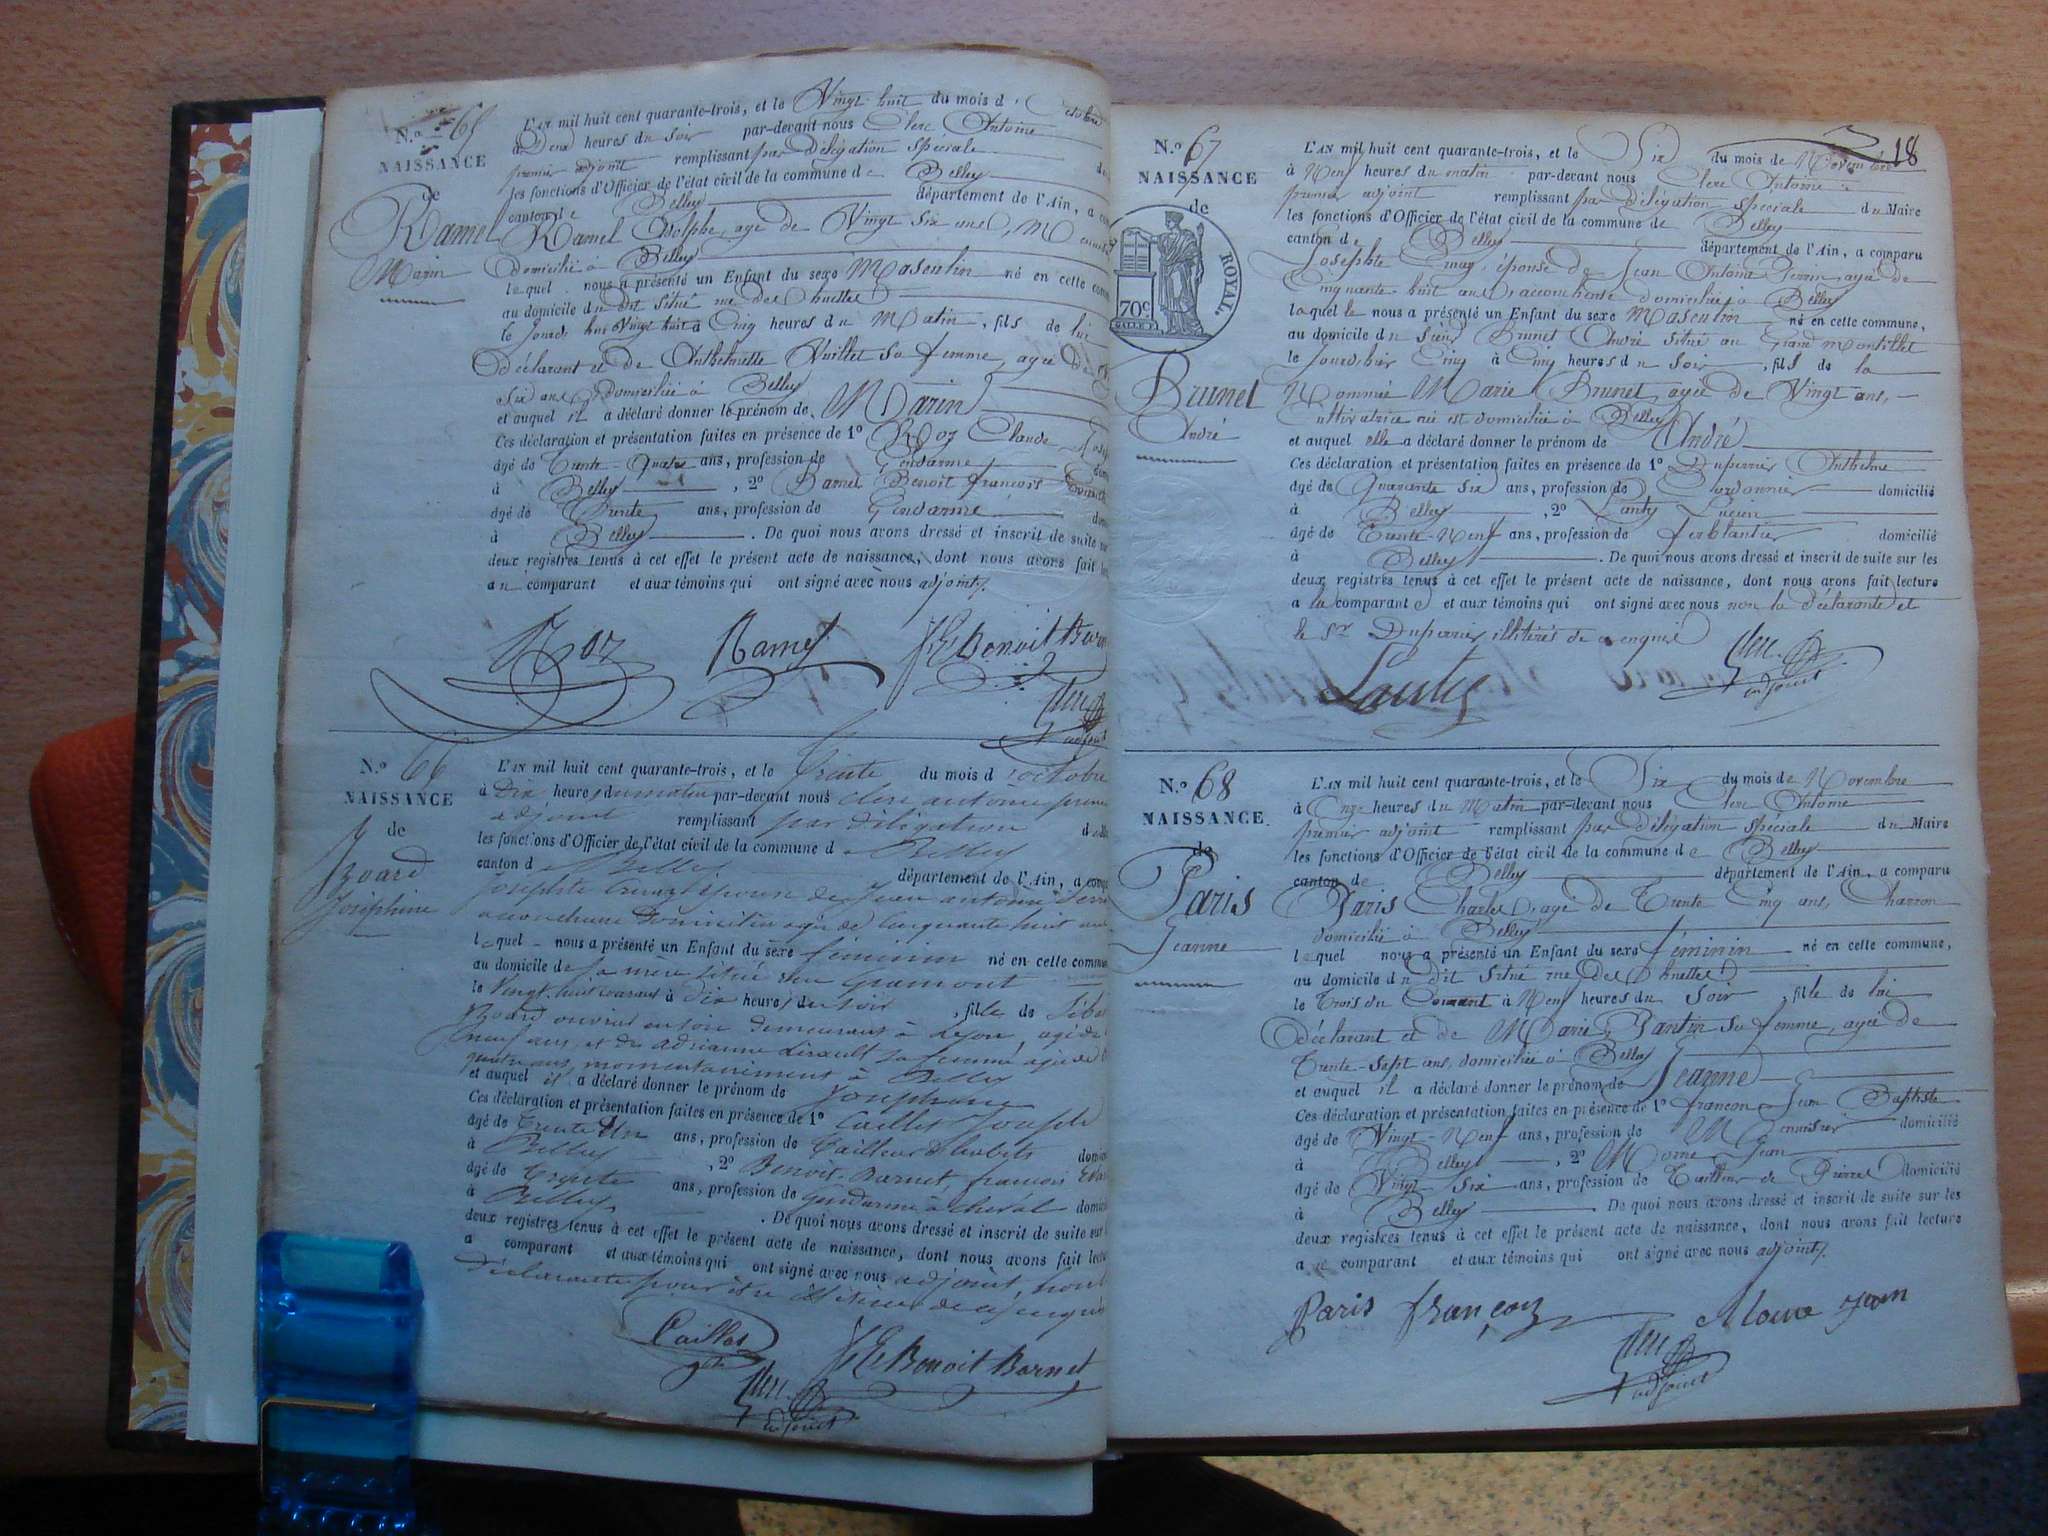 N.º 65
NAISSANCE
de
Ramel
Marin
L'AN mil huit cent quarante-trois, et le Vingt huit du mois d'Octobre
à Deux heures du Soir par-devant nous Clerc Antoine
premier adjoint remplissant par Délégation Spéciale
les fonctions d'Officier de l'état civil de la commune de Belley
canton de Belley département de l'Ain, a com
Ramel Adolphe, agé de Vingt Six ans,
Domicilié à Belley
lequel nous a présenté un Enfant du sexe Masculin né en cette comm
au domicile du dit Situé rue des
le Jourd'hui Vingt huit à Cinq heures du Matin, fils de lui
Déclarant et de Anthelmette Vuillet Sa femme, agée de
Six ans Domiciliée à Belley
et auquel il a déclaré donner le prénom de Marin
Ces déclaration et présentation faites en présence de 1º Roz Claude
âgé de Trente-Quatre ans, profession de Gendarme
à Belley, 2º Barnel Benoit françois
âgé de Trente ans, profession de Gendarme
à Belley. De quoi nous avons dressé et inscrit de suite sur
deux registres tenus à cet effet le présent acte de naissance, dont nous avons fait lec
au comparant et aux témoins qui ont signé avec nous adjoint.
Roz Ramel Benoit Bar
Clerc
adjoint
N.º 66
NAISSANCE
de
Board
Joséphine
L'AN mil huit cent quarante-trois, et le Trente du mois d'octobre
à Dix heures du matin par-devant nous clerc antoine premier
adjoint remplissant par délégation
les fonctions d'Officier de l'état civil de la commune d Belley
canton d Belley département de l'Ain, a comp
Josephte Cruaz épouse de Jean antoine
accoucheuse Domiciliée agée de Cinquante huit ans
laquel nous a présenté un Enfant du sexe féminin né en cette commun
au domicile de sa mère situé rue Gramont
le Vingt huit courant à dix heures du soir, fille de
Board ouvrier en soie demeurant à Lyon, agé de
neuf ans, et de adrianne sa femme agée de
quatre ans, momentanément à Belley
et auquel il a déclaré donner le prénom de Josephine
Ces déclaration et présentation faites en présence de 1º Caillot Joseph
âgé de Trente Un ans, profession de Tailleur d'habits
à Belley, 2º Benoit Barnet, francois
âgé de Trente ans, profession de gendarme à cheval
à Belley. De quoi nous avons dressé et inscrit de suite sur
deux registres tenus à cet effet le présent acte de naissance, dont nous avons fait lect
a comparant et aux témoins qui ont signé avec nous adjoint, non
déclarante pour être illitérée de ce enquise
Caillot Benoit Barnet
Clerc
adjoint
18
N.º 67
NAISSANCE
de
ROYAL.
70c
Brunet
André
L'AN mil huit cent quarante-trois, et le Six du mois de Novembre
à Neuf heures du matin par-devant nous Clerc Antoine
premier adjoint remplissant par Délégation Spéciale du Maire
les fonctions d'Officier de l'état civil de la commune de Belley
canton de Belley département de l'Ain, a comparu
Josephte Cruaz, épouse de Jean Antoine Perrin, agée de
Cinquante huit ans, accoucheuse domiciliée à Belley
laquelle nous a présenté un Enfant du sexe Masculin né en cette commune,
au domicile du Sieur Brunet André Situé au Grand Montillet
le Jourd'hier Cinq à Cinq heures du Soir, fils de la
Nommée Marie Brunet, agée de Vingt ans,
cultivatrice née et domiciliée à Belley
et auquel elle a déclaré donner le prénom de André
Ces déclaration et présentation faites en présence de 1º Duperrier Anthelme
âgé de Quarante Six ans, profession de Cordonnier domicilié
à Belley, 2º Lanty Lucien
âgé de Trente-Neuf ans, profession de ferblantier domicilié
à Belley. De quoi nous avons dressé et inscrit de suite sur les
deux registres tenus à cet effet le présent acte de naissance, dont nous avons fait lecture
a la comparante et aux témoins qui ont signé avec nous non la Déclarante et
le Sr Duperrier illitérés de ce enquis
Clerc
adjoint
N.º 68
NAISSANCE
de
Paris
Jeanne
L'AN mil huit cent quarante-trois, et le Six du mois de Novembre
à Onze heures du Matin par-devant nous Clerc Antoine
premier adjoint remplissant par Délégation Spéciale du Maire
les fonctions d'Officier de l'état civil de la commune de Belley
canton de Belley département de l'Ain, a comparu
Paris Charles, agé de Trente Cinq ans, Charron
domicilié à Belley
lequel nous a présenté un Enfant du sexe féminin né en cette commune,
au domicile du dit Situé rue des
le Trois du Courant à Neuf heures du Soir, fille de lui
Déclarant et de Marie Bantin Sa femme, agée de
Trente-Sept ans, domiciliée à Belley
et auquel il a déclaré donner le prénom de Jeanne
Ces déclaration et présentation faites en présence de 1º françon Jean Baptiste
âgé de Vingt-Neuf ans, profession de Menuisier domicilié
à Belley, 2º Mome Jean
âgé de Vingt Six ans, profession de Tailleur de Pierre domicilié
à Belley. De quoi nous avons dressé et inscrit de suite sur les
deux registres tenus à cet effet le présent acte de naissance, dont nous avons fait lecture
a ce comparant et aux témoins qui ont signé avec nous adjoint.
Paris françon Mome jean
Clerc
adjoint